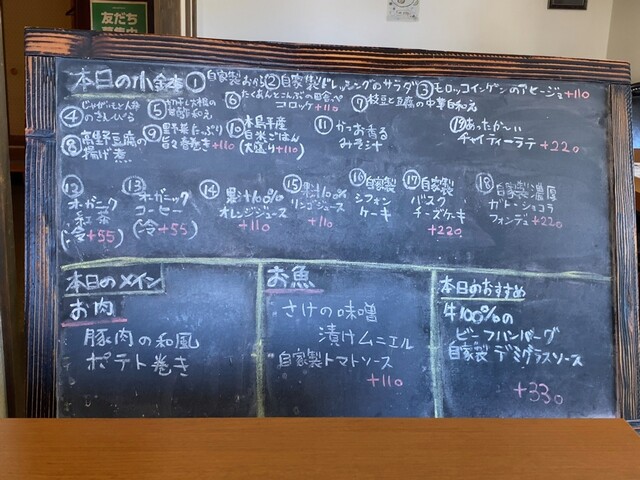 友だち
募集中
本日の小鉢
① 自家製おから
② 自家製ドレッシングのサラダ
③ モロッコインゲンのアヒージョ +110
④ じゃがいもと人参のきんぴら
⑤ 切干し大根の
⑥ たくあんとこんぶの田舎風
コロッケ +110
⑦ 枝豆と豆腐の中華和え
⑧ 高野豆腐の
揚げ煮
⑨ 野菜たっぷり
春巻き +110
⑩ 糸島平産
白米ごはん
(大盛り +110)
⑪ かつお香る
みそ汁
⑲ あったか〜い
チャイティーラテ
+220
⑫ オーガニック
紅茶
(冷 +55)
⑬ オーガニック
コーヒー
(冷 +55)
⑭ 果汁100%
オレンジジュース
+110
⑮ 果汁100%
リンゴジュース
+110
⑯ 自家製
シフォン
ケーキ
⑰ 自家製
バスク
チーズケーキ
+220
⑱ 自家製濃厚
ガトーショコラ
フォンデュ +220
本日のメイン
お肉
豚肉の和風
ポテト巻き
お魚
さけの味噌
漬けムニエル
自家製トマトソース
+110
本日のおすすめ
牛100%の
ビーフハンバーグ
自家製デミグラスソース
+330